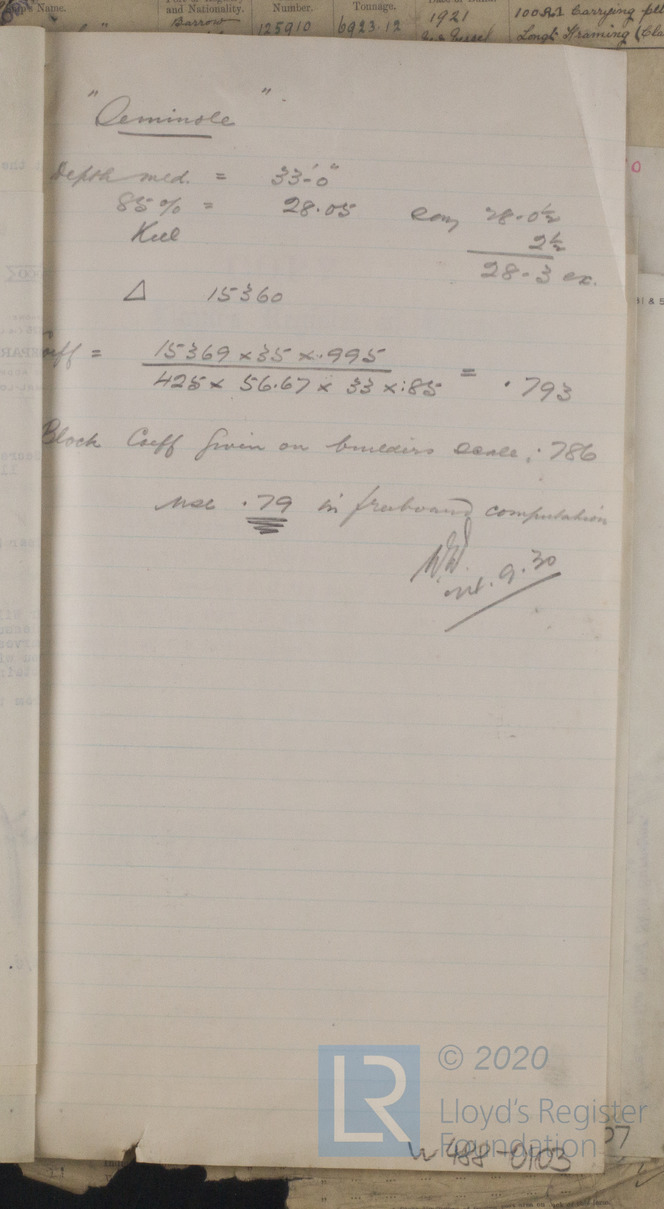 n's Name.
and Nationality.
Number.
Tonnage.
Barrow
125910
6923.12
1921
100A1 Carrying
Longl Framing
"Seminole".
Depth mld. = 33'-0"
85% = 28.05 say 28-0½
Keel 2½
28-3 ex.
Δ 15360
Coeff = 15369 x 35 x .995
425 x 56.67 x 33 x .85 = .793
Block Coeff given on builders scale, .786
use .79 in freeboard computation
9.30
© 2020
LR
Lloyd's Register
Foundation
W488-0103
07